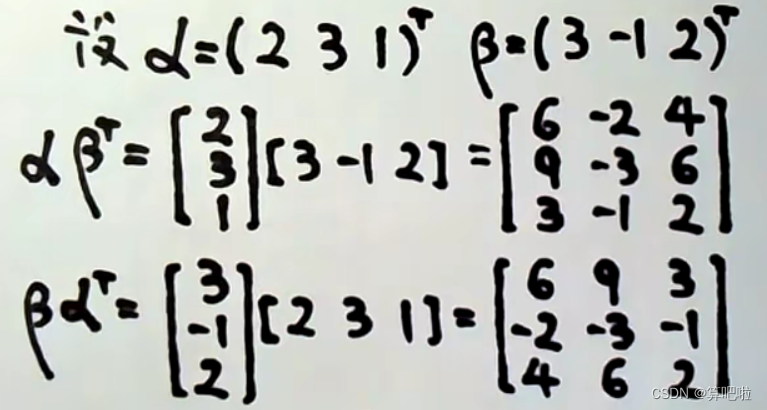 设 α=(2 3 1)ᵀ β=(3 -1 2)ᵀ
αβᵀ=[2 3 1][3 -1 2]=[6 -2 4
9 -3 6
3 -1 2]
βαᵀ=[3 -1 2][2 3 1]=[6 9 3
-2 -3 -1
4 6 2]
CSDN @算吧啦